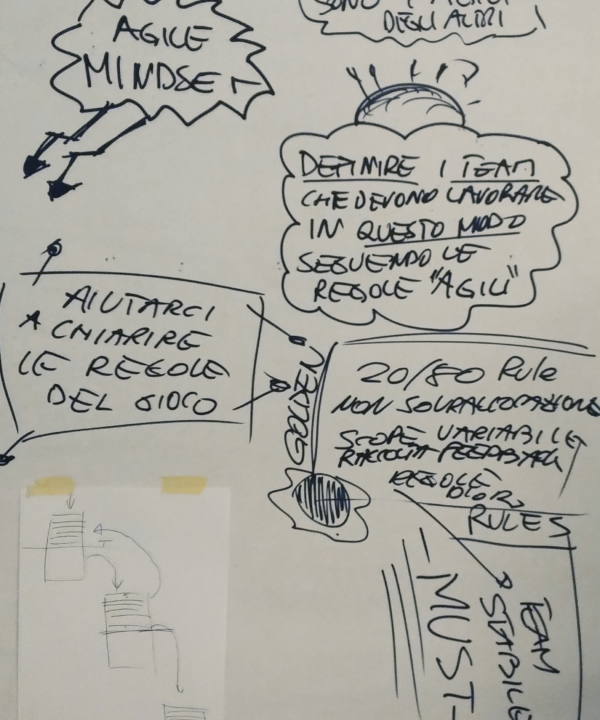 AGILE
MINDSET
SONO I
DEGLI ALTRI
DEFINIRE I TEAM
CHE DEVONO LAVORARE
IN QUESTO MODO
SEGUENDO LE
REGOLE "AGILI"
AIUTARCI
A CHIARIRE
LE REGOLE
DEL GIOCO
GOLDEN
20/80 Rule
NON SOVRALLOCAZIONE
SCOPE VARIABILE
RACCOLTA FEEDBACK
REGOLE
D'ORO
RULES
TEAM
STABILE
-MUST-